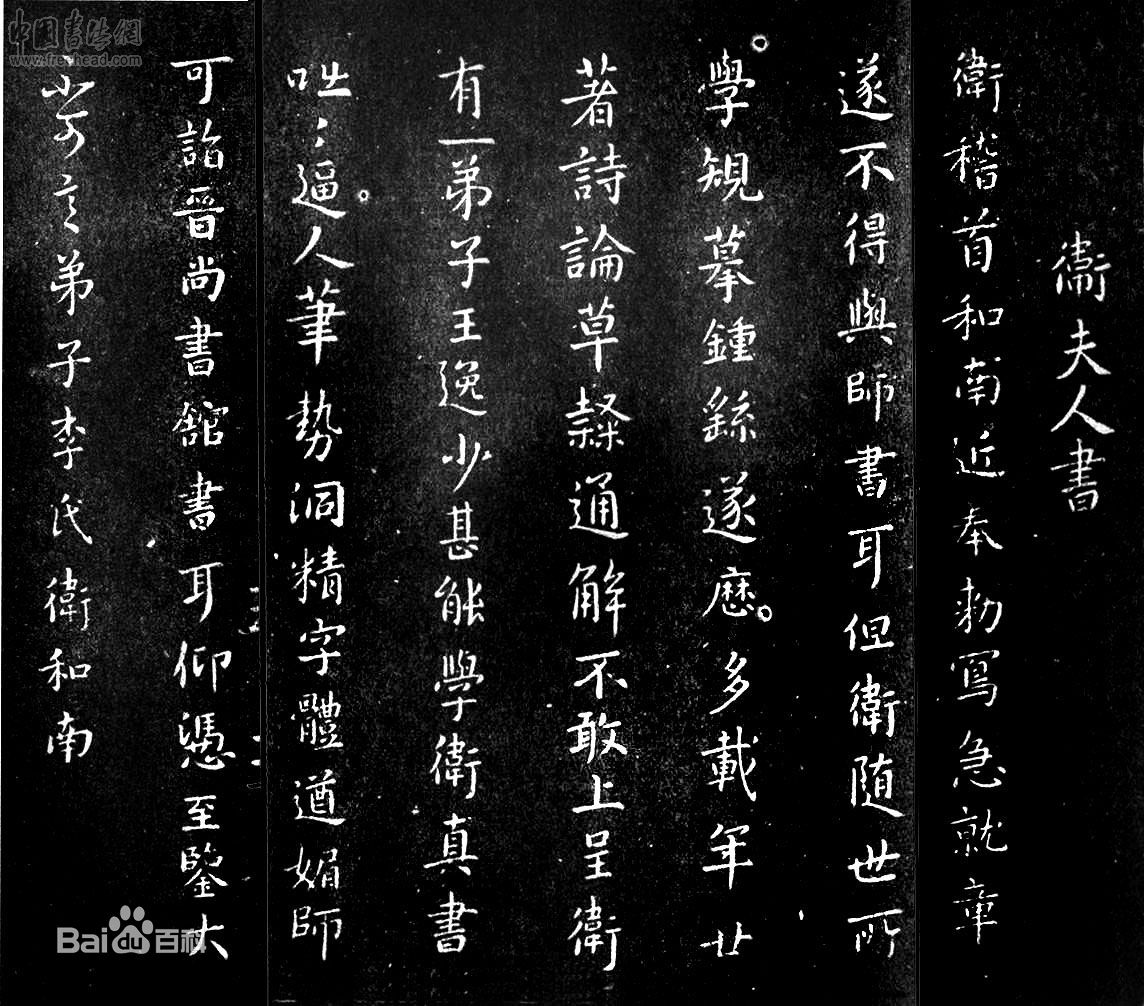 衛夫人書
衛稽首和南近奉勑寫急就章
遂不得與師書耳但衛隨世所
學規摹鍾繇遂歷多載年廿
著詩論草隸通解不敢上呈衛
有一弟子王逸少甚能學衛真書
咄〻逼人筆勢洞精字體遒媚師
可詣晉尚書館書耳仰憑至鑒大
不可言弟子李氏衛和南
中国书法网
www.freehead.com
Bai du 百科